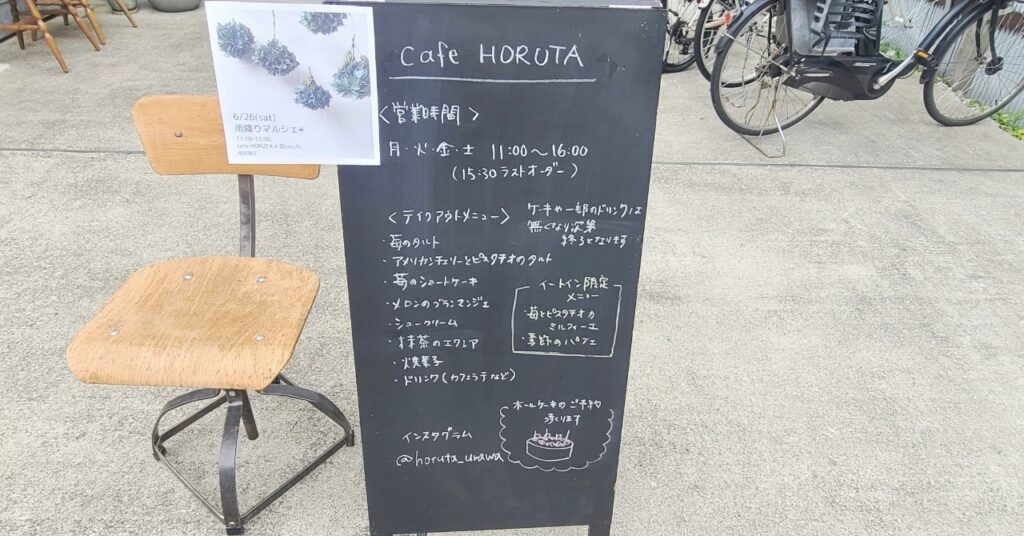 6/26(sat)
雨降りマルシェ☂
11:00-16:00
cafe HORUTA ×
cafe HORUTA
〈営業時間〉
月・火・金・土 11:00〜16:00
(15:30 ラストオーダー)
〈テイクアウトメニュー〉
・苺のタルト
・アメリカンチェリーとピスタチオのタルト
・苺のショートケーキ
・メロンのブランマンジェ
・シュークリーム
・抹茶のエクレア
・焼菓子
・ドリンク(カフェラテなど)
ケーキや一部のドリンクは
無くなり次第
終了となります
イートイン限定
メニュー
・苺とピスタチオの
ミルフィーユ
・季節のパフェ
ホールケーキのご予約
承ります
インスタグラム
@horuta_urawa